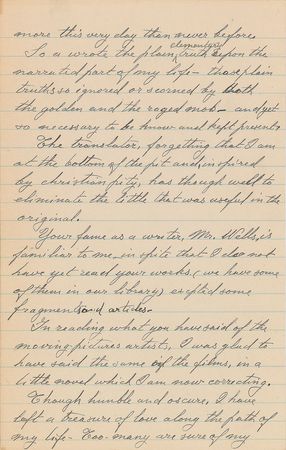 more this very day than never before.
So a wrote the plain elementary truth upon the
narrated part of my life - those plain
truths so ignored or scorned by both
the golden and the raged mob - and yet
so necessary to be know and kept present.
The translator, forgetting that I am
at the bottom of the pit and, inspired
by christian pity, has though well to
eliminate the little that was useful in the
original.
Your fame as a writer, Mr. Wells, is
familiar to me, in spite that I do not
have yet read your works, (we have some
of them in our library) exepted some
fragments and articles.
In reading what you have said of the
moving pictures artists, I was glad to
have said the same of the films, in a
little novel which I am now correcting.
Though humble and oscure, I have
left a treasure of love along the path of
my life - Too many are sure of my